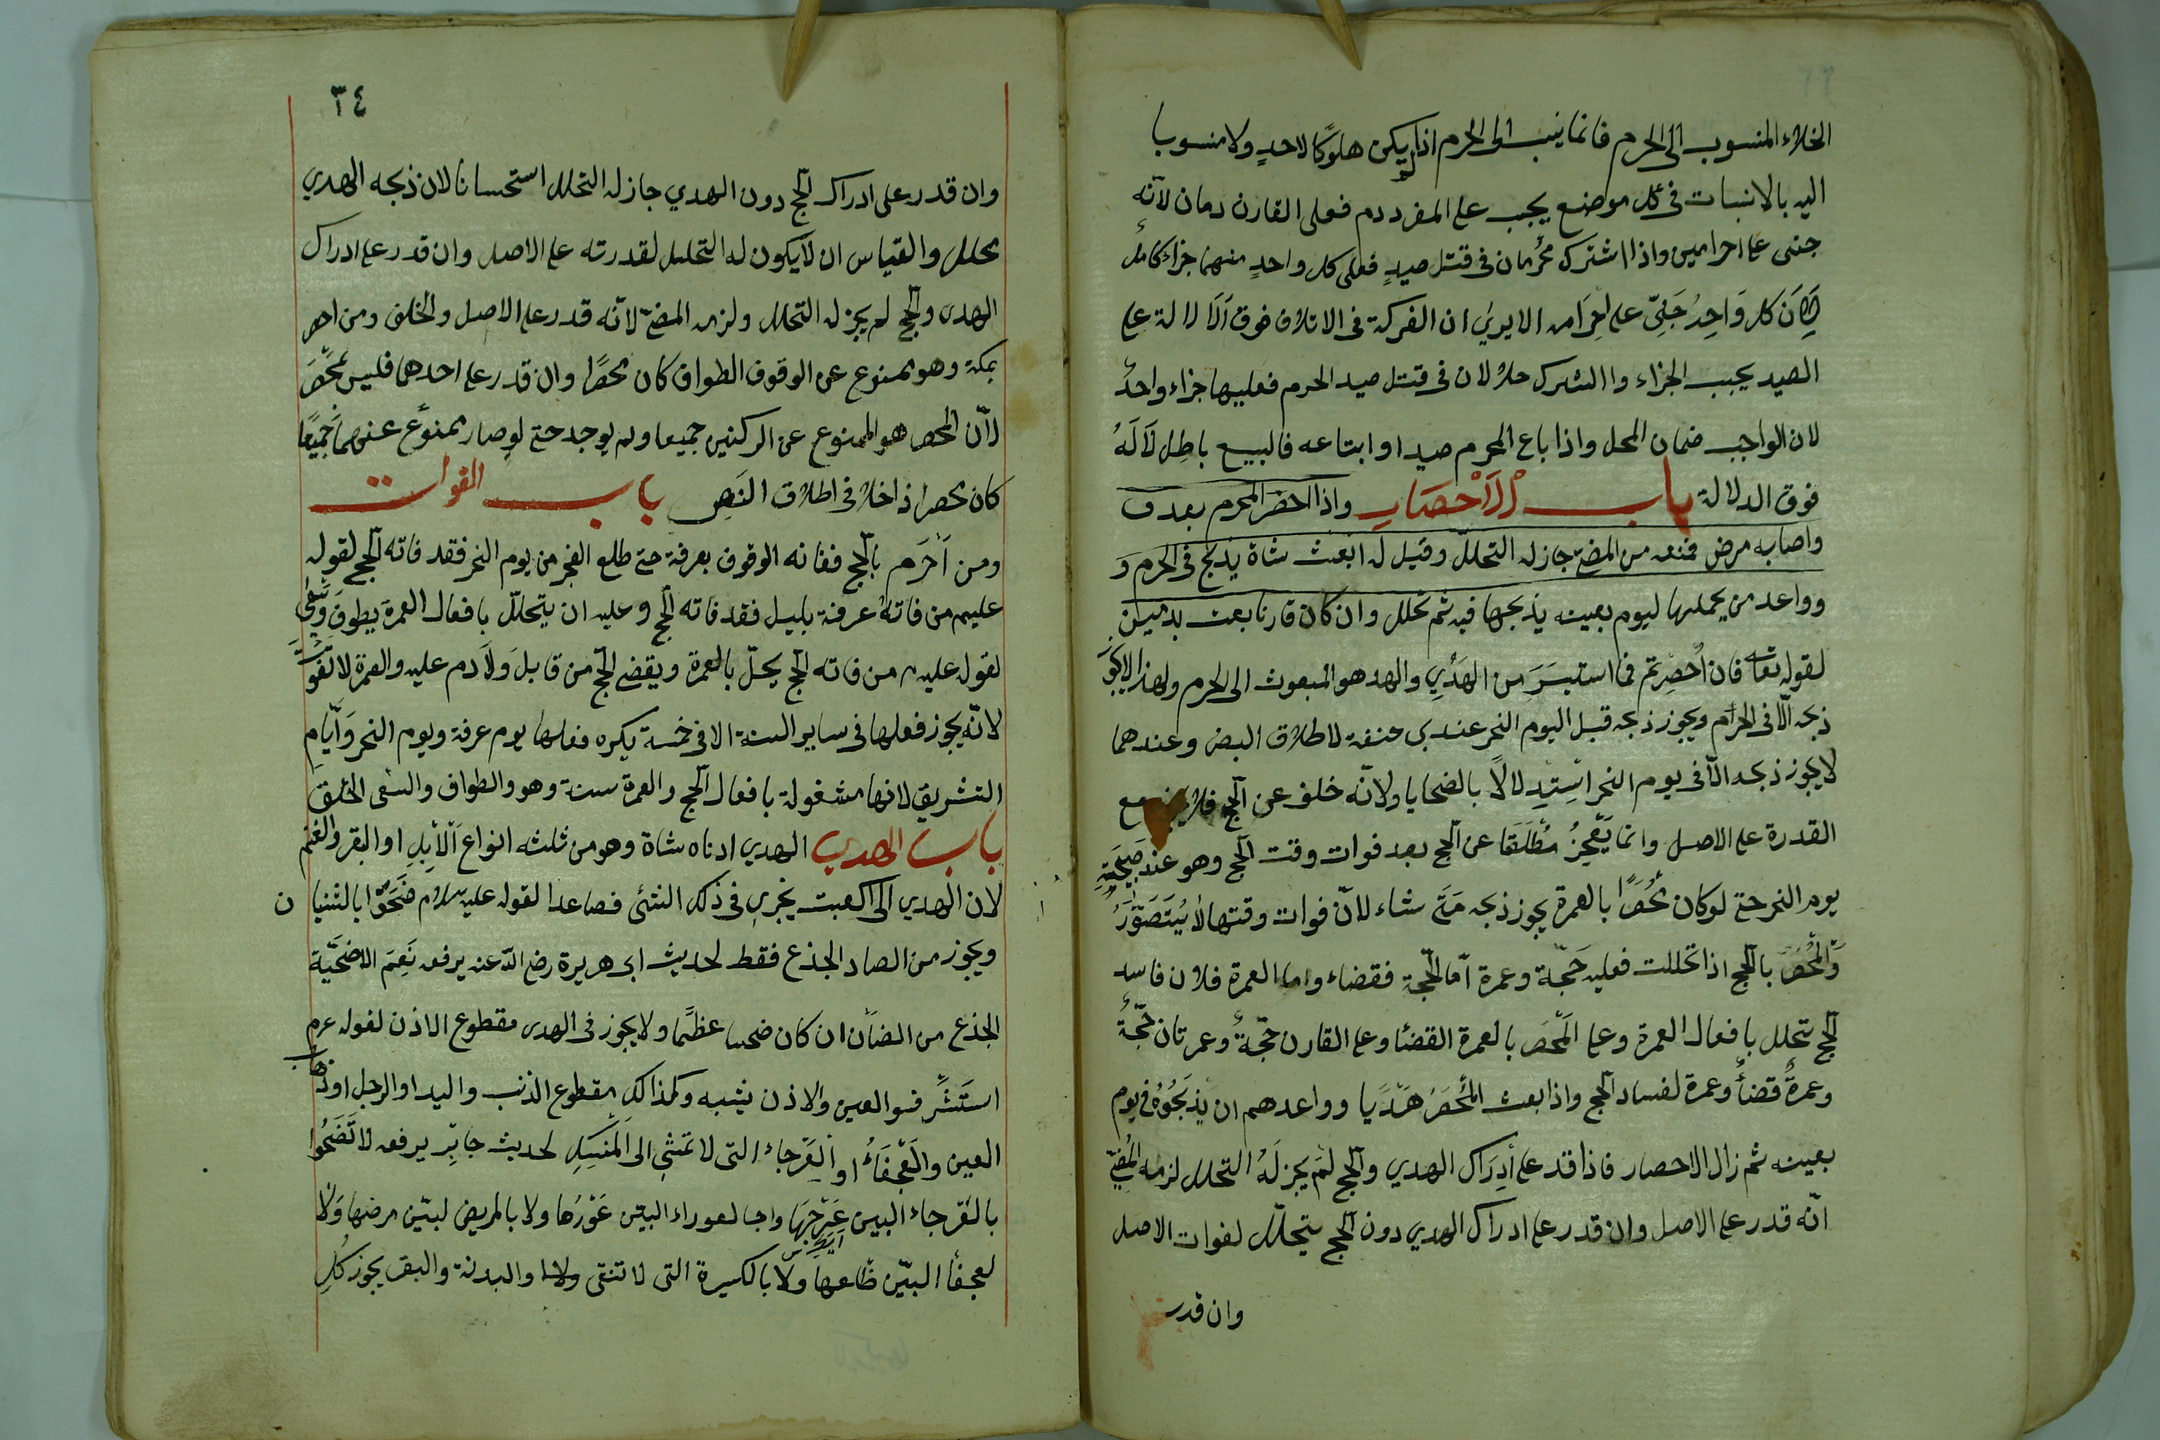 الخلاء المنسوب الى الحرم فانما ينسب الى الحرم اذا لم يكن مملوكا لاحدٍ ولا منسوبا
اليه بالانبات فى كل موضع يجب على المفرد دم فعلى القارن دمان لانه
جنى على احرامين واذا اشترك محرمان فى قتل صيدٍ فعلى كل واحدٍ منهما جزاء كامل
كل واحد على الايرى ان الشركة فى الاتلاف فوق الدلالة على
الصيد يجب الجزاء واا اشترك حلالان فى قتل صيد الحرم فعليها جزاء واحدٌ
لان الواجب ضمان المحل واذا باع المحرم صيدا او ابتاعه فالبيع باطل لانه
فوق الدلالة باب الاحصار واذا احصر المحرم بعد
واصابه مرض فمنعه من المضي جازله التحلل وقيل له ابعث شاة يذبح فى الحرم و
وواعد من يحملها ليوم بعينه يذبحها فيه ثم تحلل وان كان قارنا بعث بدمين
لقوله تعا فان اُحصِرتم فما استيسَرَ من الهَدْيِ والهد هو المبعوث الى الحرم ولهذا لايجوز
ذبحه الّا فى الحرام ويجوز ذبحه قبل اليوم النحر عندبى حنفة لاطلاق النص وعندهما
لا يجوز ذبحه الّا فى يوم النحر استدلالاً بالضحايا ولانّه خلف عن الحج فلا مع
القدرة على الاصل وانما يَعْجِزُ مُطْلَقا عن الحج بعد فوات وقت الحج وهو عند صَبِيحَةِ
يوم النحر حتے لوكان مُحصَرًا بالعمرة يجوز ذبحه مَتَى شاء لانّ فوات وقتها لا يُتَصَوَّرُ
وَالْمُحْصَرُ بالحج اذا تحللت فعليه حَجّة وعمرة اَمّا الحجّةِ فقضاء واما العمرة فلان فاسد
الحج يتحلل بافعال العمرة وعلى المحصَر بالعمرة القضا وعلى القارن حجّةٌ وعمرتان حَجّةٌ
وعمرةٌ قضأً وعمرة لفساد الحج واذا بعث المُحصَرُ هَدْيا وواعدهم ان يذبحُوهُ فى يوم
بعينه ثم زال الاحصار فاذا قد على اِدراك الهدي والحج لم يجز لَهُ التحلل لزمه المُضِيّ
انّه قدر على الاصل وان قدر على ادراك الهدي دون الحج يتحلّل لفوات الاصل
وان قدر
٣٤
وان قدر على ادراك الحج دون الهدي جازله التحلل استحسانا لان ذبحه الهدي
تحلل والقياس ان لايكون له التحليل لقدرته على الاصل وان قدر على ادراك
الهدى والحج لم يجز له التحلل ولزمه المضيّ لانّه قدر على الاصل والخلف ومن احصر
بمكة وهو ممنوع عن الوقوف الطواف كان محصرًا وان قدر على احدهما فليس بمحصَر
لانّ المحصر هو الممنوع عن الركنين جميعا ولم يوجد حتے لو صار ممنوع عنهما جميعًا
كان محصرا ذاخلا فى اطلاق النَصِ باب الفوات
ومن اَحْرَم بالحج ففا ته الوقوف بعرفة حتے طلع الفجر من يوم النحر فقد فاته الحج لقوله
عليهم من فاتهُ عرفة بليل فقد فاته الحج وعليه ان يتحللّ بافعال العمرة يطوف ويسعى
لقوله عليه م من فاته الحج يحلّ بالعمرة ويقضے الحج من قابلَ وَلاَ دم عليه والعمرة لا تفوت
لانّه يجوز فعلها فى ساير السنة الا فى خمسة يكره فعلها يوم عرفة ويوم النحر وَاَيّامِ
التشريق لانها مشغولة بافعال الحج والعمرة سنة وهو والطواف والسعى الحلق
باب الهدي الهدي ادناه شاة وهو من ثلثه انواع اَلْاِبِلِ او البقر والغنم
لان الهدي الى الكعبت يجري فى ذلك الثنى فصاعدا لقوله عليه سلام ضَحّوا بالثنيا ن
ويجوز من الصاد الجذع فقط لحديث ابى هريرة رضى اللّه عنه يرفعه نَعِمَ الاضحيّة
الجذع من الضأن ان كان ضحىا عظيمًا ولا يجوز فى الهدى مقطوع الاذن لقوله عرم
استَشرِفوا العين والاذن يشبه وكذالك مقطوع الذنب واليد او الرجل او ذهاب
العين والعَجْفَاءُ او العَرْجاءُ التى لا تمشي الى المَنسِكِ لحديث جابرٍ يرفعه لا تضَحُوا
بالعَرجاء البين عَرَجَهَا واجا لعوراء البيّن عَوْرُها ولا بالمريض لبيّن مرضها وَلا
لعجفأ البيّن ظاعها وَلا بالكسيرة التى لا تنقى ولا والبدنة والبقر يجوز كُل